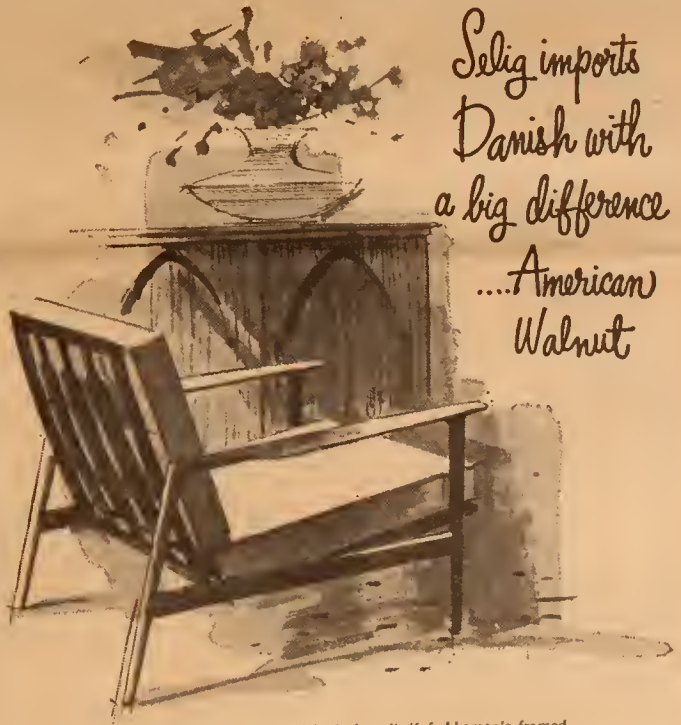 Selig imports
Danish with
a big difference
....American
Walnut
framed